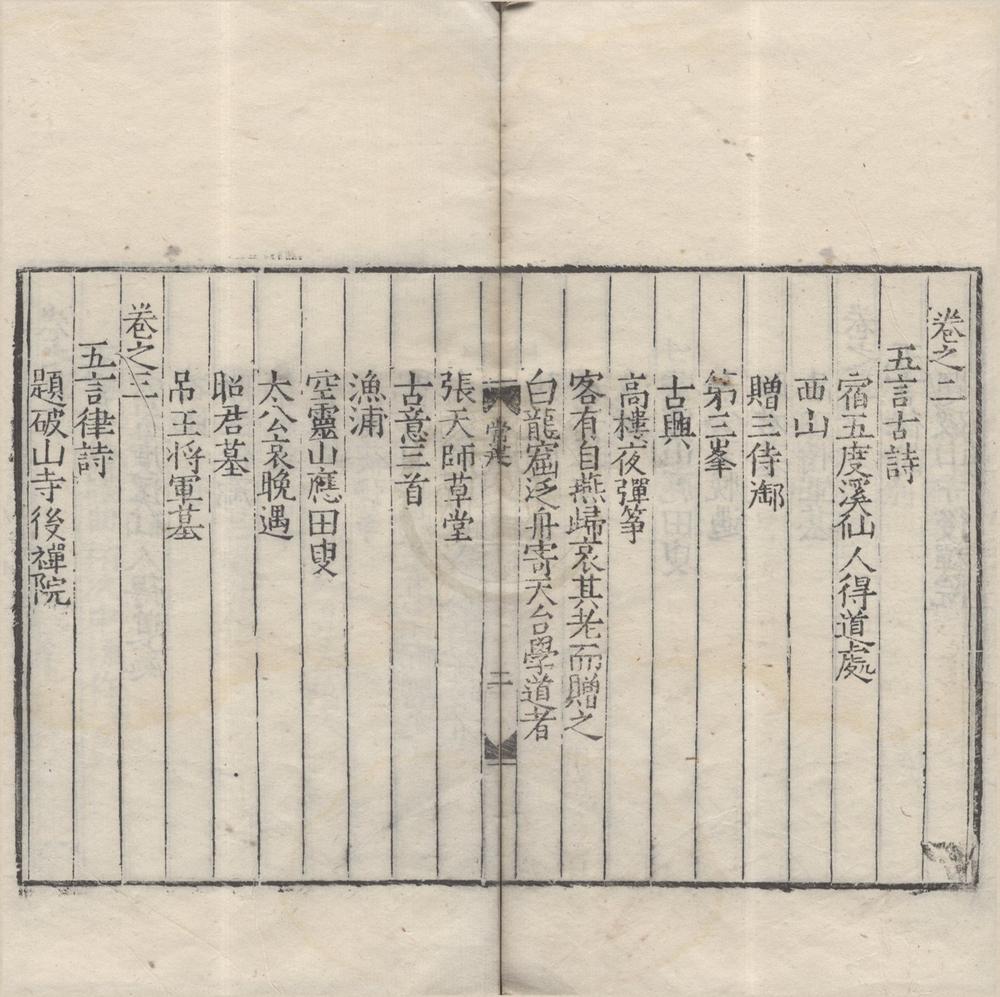 卷之二
五言古詩
宿五度溪仙人得道處
西山
贈三侍御
第三峯
古興
高樓夜彈筝
客有自燕歸哀其老而贈之
白龍窟泛舟寄天台學道者
常建
二
張天師草堂
古意三首
漁浦
空靈山應田叟
太公哀晚遇
昭君墓
吊王将軍墓
卷之三
五言律詩
題破山寺後禪院